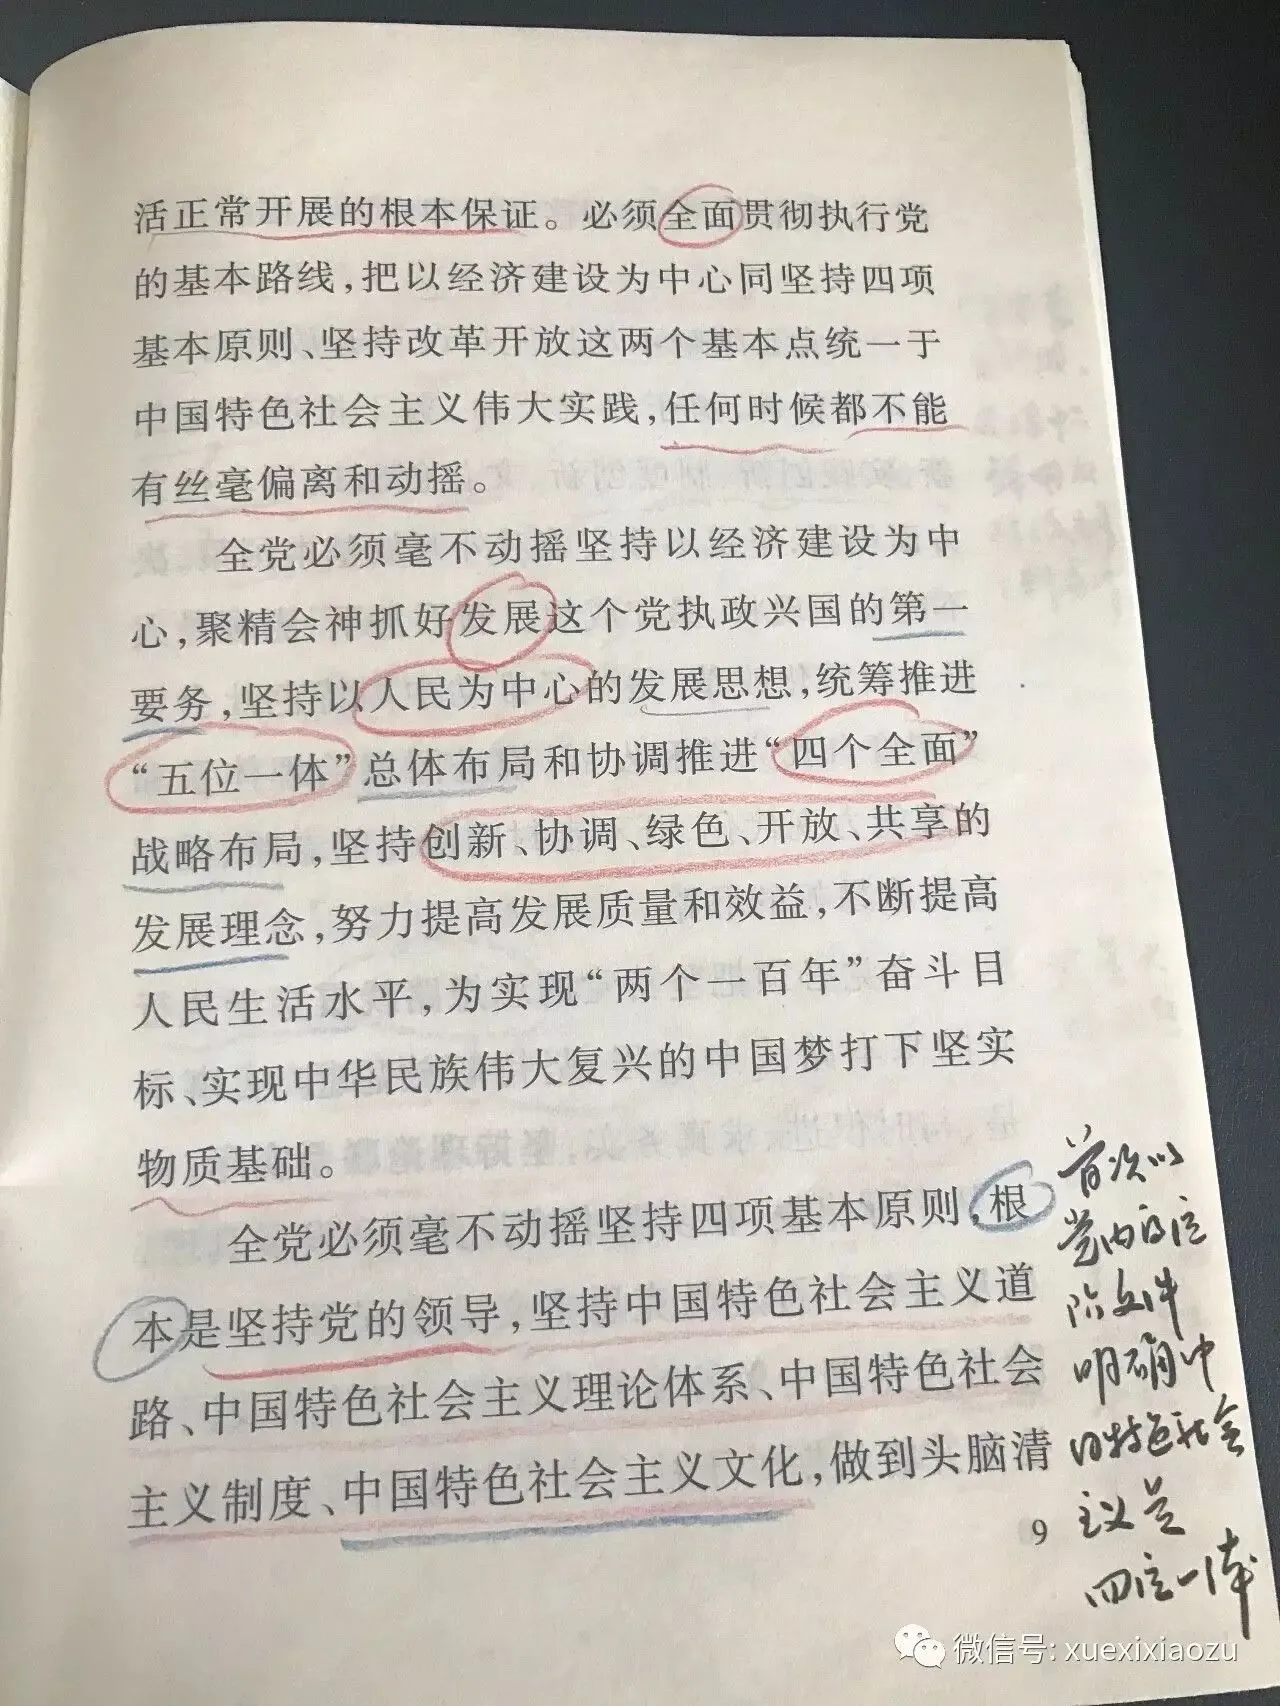 活正常开展的根本保证。必须全面贯彻执行党
的基本路线，把以经济建设为中心同坚持四项
基本原则、坚持改革开放这两个基本点统一于
中国特色社会主义伟大实践，任何时候都不能
有丝毫偏离和动摇。
全党必须毫不动摇坚持以经济建设为中
心，聚精会神抓好发展这个党执政兴国的第一
要务，坚持以人民为中心的发展思想，统筹推进
“五位一体”总体布局和协调推进“四个全面”
战略布局，坚持创新、协调、绿色、开放、共享的
发展理念，努力提高发展质量和效益，不断提高
人民生活水平，为实现“两个一百年”奋斗目
标、实现中华民族伟大复兴的中国梦打下坚实
物质基础。
全党必须毫不动摇坚持四项基本原则，根
本是坚持党的领导，坚持中国特色社会主义道
路、中国特色社会主义理论体系、中国特色社会
主义制度、中国特色社会主义文化，做到头脑清
9
首次以
党内
文件
明确中
国特色社会
主义是
四位一体
微信号: xuexixiaozu